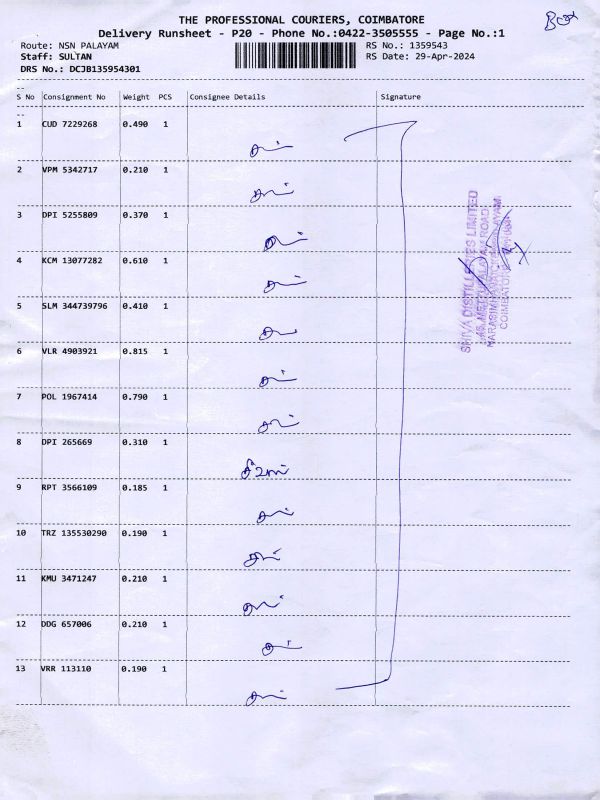 THE PROFESSIONAL COURIERS, COIMBATORE
Delivery Runsheet - P20 - Phone No.:0422-3505555 - Page No.:1
Route: NSN PALAYAM
RS No.: 1359543
Staff: SULTAN
RS Date: 29-Apr-2024
DRS No.: DCJB135954301
S No Consignment No Weight PCS Consignee Details Signature
1 CUD 7229268 0.490 1
2 VPM 5342717 0.210 1
3 DPI 5255809 0.370 1
4 KCM 13077282 0.610 1
5 SLM 344739796 0.410 1
6 VLR 4903921 0.815 1
7 POL 1967414 0.790 1
8 DPI 265669 0.310 1
9 RPT 3566109 0.185 1
10 TRZ 135530290 0.190 1
11 KMU 3471247 0.210 1
12 DDG 657006 0.210 1
13 VRR 113110 0.190 1
SHIVA DISTILLERIES LIMITED
ROAD
COIMBATORE